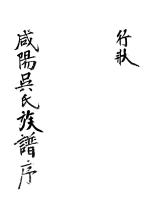 行狀
咸陽吳氏族譜序